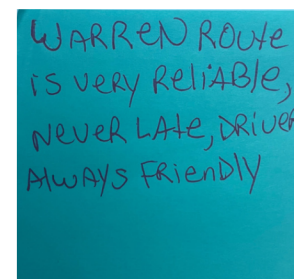 WARREN ROUte
is veRy ReliABle,
NeveR LAte, DRiveR
AlwAys FRienDly